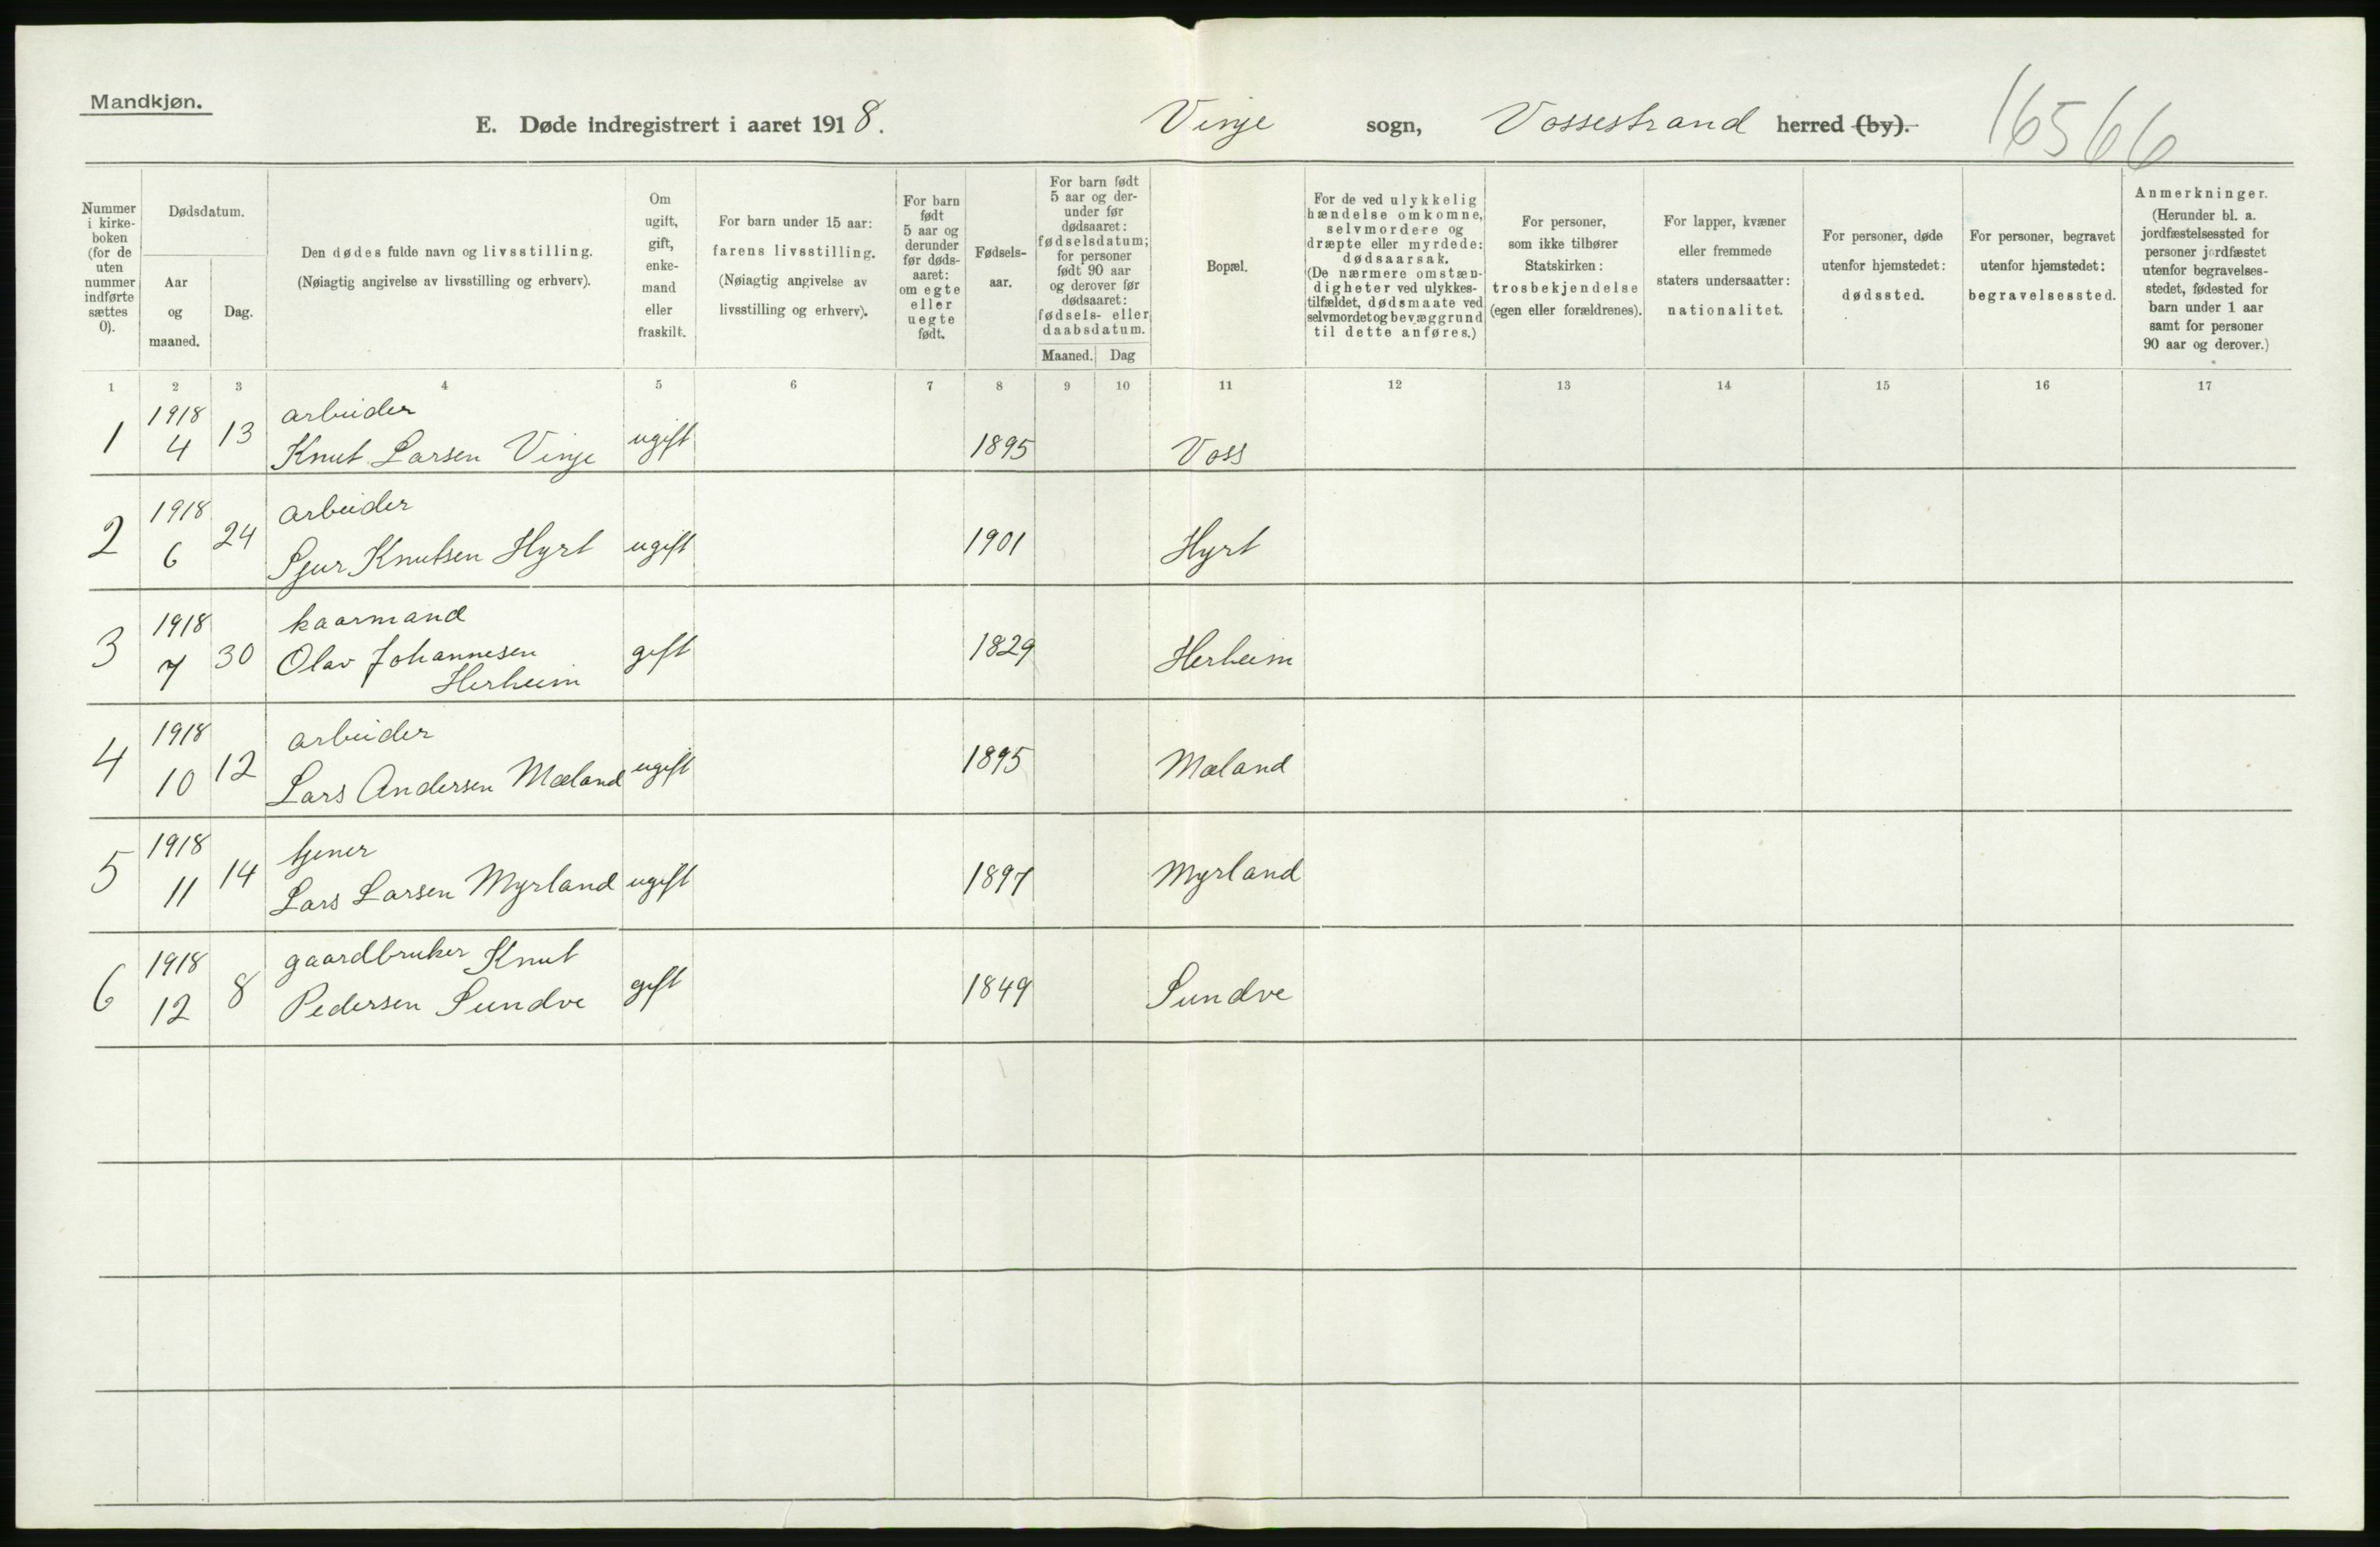 Mandkjøn.
E. Døde indregistrert i aaret 1918. Vinje sogn, Vossestrand herred (by). 16566
Nummer i kirke-boken (for de uten nummer indførte sættes 0).
Dødsdatum.
Aar og maaned.
Dag.
Den dødes fulde navn og livsstilling.
(Nøiagtig angivelse av livsstilling og erhverv).
Om ugift, gift, enke-mand eller fraskilt.
For barn under 15 aar:
farens livsstilling.
(Nøiagtig angivelse av
livsstilling og erhverv).
For barn født 5 aar og derunder før døds-aaret: om egte eller uegte født.
Fødsels-aar.
For barn født 5 aar og der-under før dødsaaret: fødselsdatum; for personer født 90 aar og derover før dødsaaret: fødsels- eller daabsdatum.
Maaned. Dag
Bopæl.
For de ved ulykkelig
hændelse omkomne,
selvmordere og
dræpte eller myrdede:
dødsaarsak.
(De nærmere omstæn-
digheter ved ulykkes-
tilfældet, dødsmaate ved
selvmordet og bevæggrund
til dette anføres.)
For personer,
som ikke tilhører
Statskirken:
trosbekjendelse
(egen eller forældrenes).
For lapper, kvæner
eller fremmede
staters undersaatter:
nationalitet.
For personer, døde
utenfor hjemstedet:
dødssted.
For personer, begravet
utenfor hjemstedet:
begravelsessted.
Anmerkninger.
(Herunder bl. a.
jordfæstelsessted for
personer jordfæstet
utenfor begravelses-
stedet, fødested for
barn under 1 aar
samt for personer
90 aar og derover.)
1 2 3 4 5 6 7 8 9 10 11 12 13 14 15 16 17
1918 arbeider
1 4 13 Knut Larsen Vinje ugift 1895 Voss
1918 arbeider
2 6 24 Sjur Knutsen Hyrt ugift 1901 Hyrt
1918 kaarmand
3 7 30 Olav Johannesen gift 1829 Herheim
Herheim
1918 arbeider
4 10 12 Lars Andersen Mæland ugift 1895 Mæland
1918 tjener
5 11 14 Lars Larsen Myrland ugift 1897 Myrland
1918 gaardbruker Knut
6 12 8 Pedersen Sundve gift 1849 Sundve